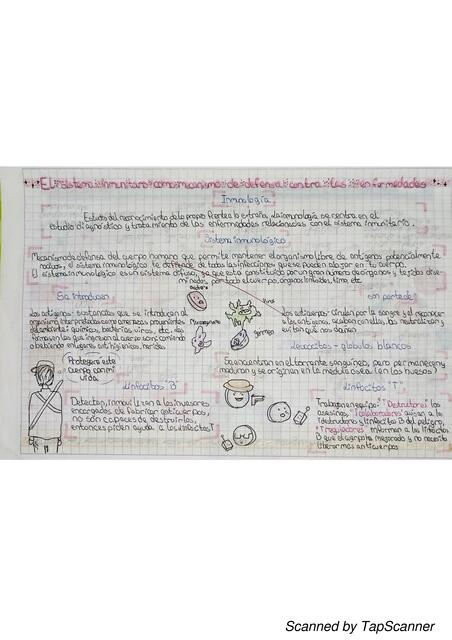 El sistema inmunitaro como mecanismo de defensa contra las enfermedades
Inmunología
Estudio del reconocimiento de lo propio frente a lo extraño, la inmunología se centra en el
estudio diagnóstico y tratamiento de las enfermedades relacionadas con el sistema inmunitario.
Sistema inmunológico
Mecanismo de defensa del cuerpo humano que permite mantener el organismo libre de antígenos potencialmente
nocivos, el sistema inmunológico te defiende de todas las infecciones que se pueden alojar en tu cuerpo.
El sistema inmunológico es un sistema difuso, ya que esta constituido por un gran numero de organos y tejidos dise-
minados por todo el cuerpo, organos linfoides, timo etc
Se introducen
bacteria
Virus
son parte de
Los antigenos: sustancias que se introducen al
organismo interpretadas como amenazas provenientes
del ambiente químico, bacterias, virus, etc,
formas en las que ingresan al cuerpo son comiendo
o bebiendo en lugares antihigienicos, heridas
Microorganismo
germen
Los anticuerpos: circulan por la sangre y al reconocer
a los antigenos, acaban con ellos, los neutralizan y
evitan que nos dañen
Leucocitos - globulos blancos
Se encuentran en el torrente sanguineo, pero permanecen y
maduran y se originan en la medula osea (en los huesos)
Protegeré este
cuerpo con mi
vida
Linfocitos "B"
Detectan, inmovilizan a los invasores
encargados de fabricar anticuerpos,
no son capaces de destruirlos,
entonces piden ayuda a los linfocitos T
Linfocitos "T"
Trabajan en equipo: "Destructores" los
asesinos, "Colaboradores" avisan a los
destructores y linfocitos B del peligro,
"reguladores" informan a los linfocitos
B que el cuerpo ha mejorado y no necesita
liberar más anticuerpos
Scanned by TapScanner